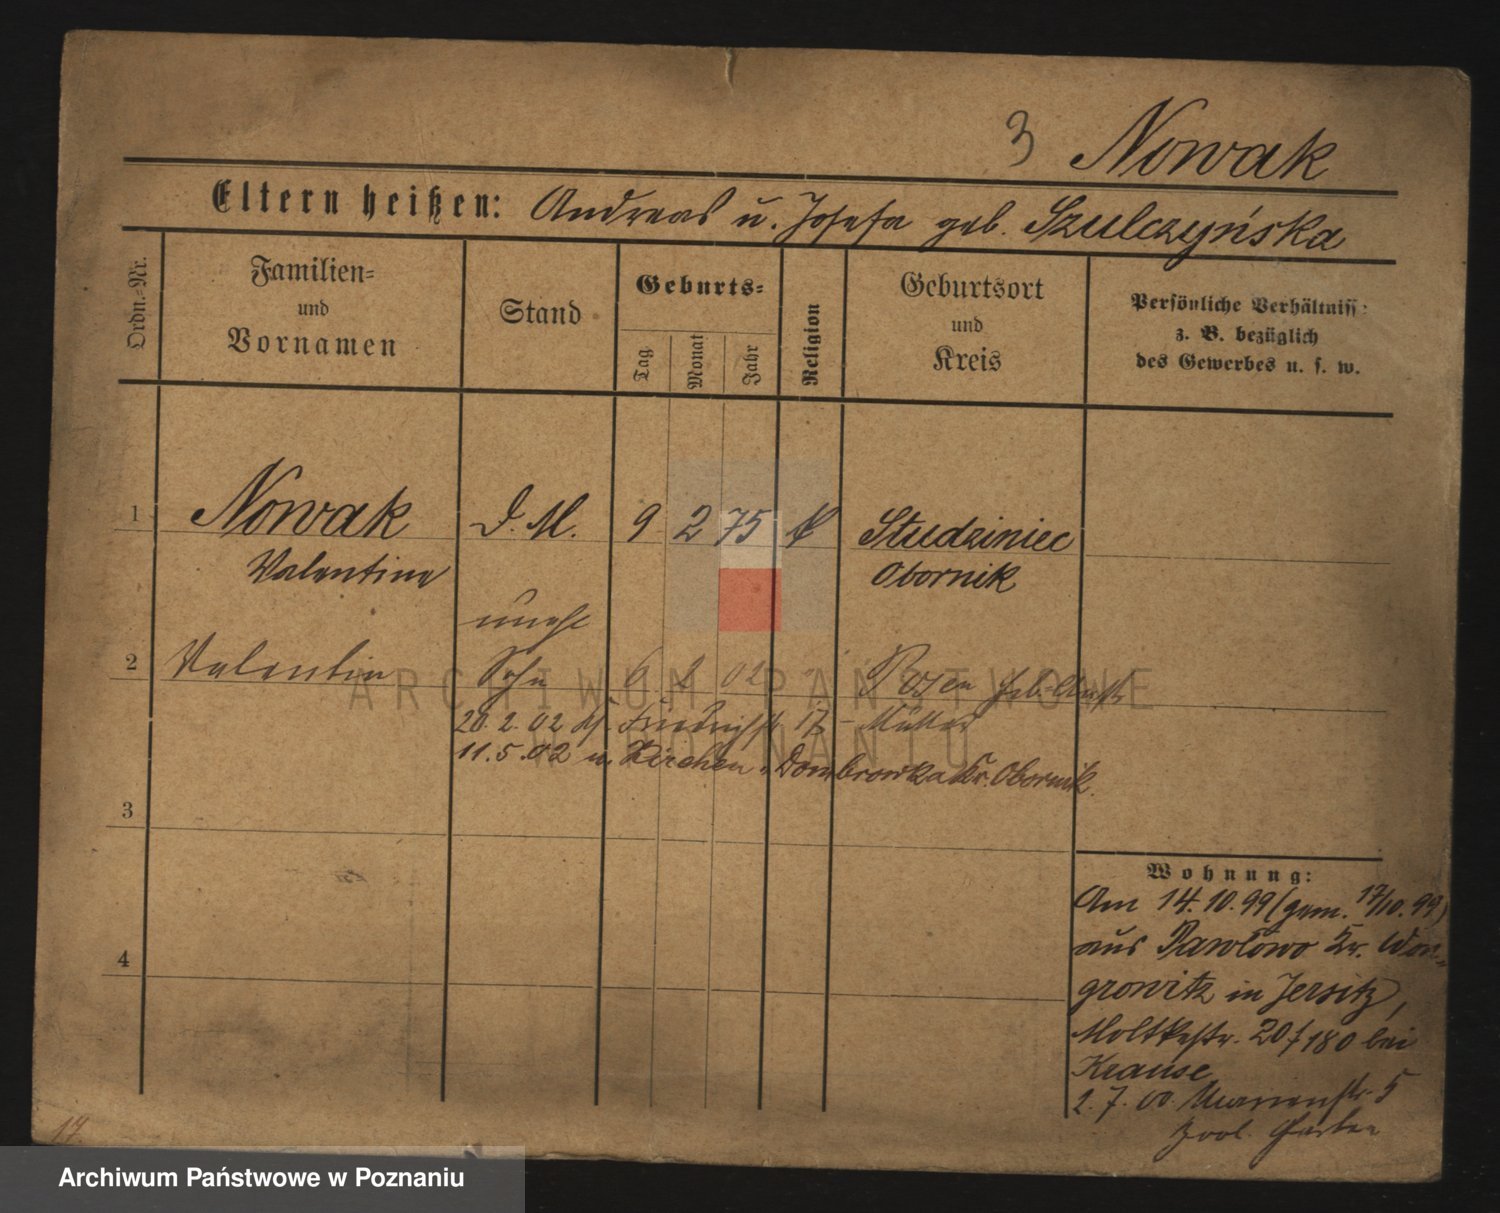 3 Nowak
Eltern heißen: Andreas u. Josefa geb. Szulczyńska
Ordn.-Nr.
Familien-
und
Vornamen
Stand
Geburts-
Tag
Monat
Jahr
Religion
Geburtsort
und
Kreis
Persönliche Verhältniss:
z. B. bezüglich
des Gewerbes u. s. w.
1 Nowak D. M. 9 2 75 Studziniec
Valentine Obornik
unehl
2 Valentin Sohn 6 2 02 Posen
ARCHIWUM PAŃSTWOWE
20.2.02 Friedrichstr. 17 Mutter
W POZNANIU
11.5.02 n. Kirchen-Dombrowka Kr. Obornik.
3
4
Wohnung:
Am 14.10.99 (gem. 17/10.99)
aus Pawlowo Kr. Won-
growitz in Jersitz,
Moltkestr. 20/180 bei
Krause
2.7.00. 5
Zool. Garten
17
Archiwum Państwowe w Poznaniu